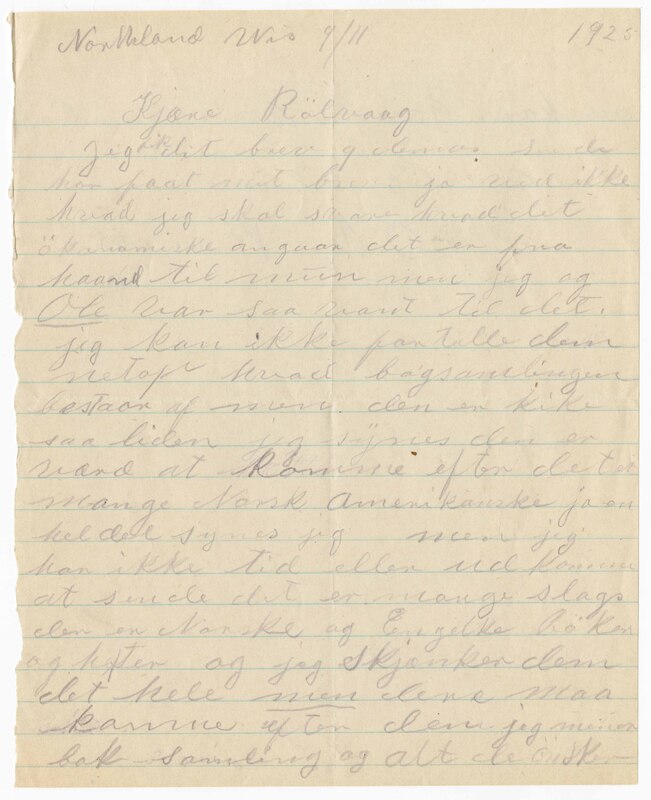 Northland Wis 9/11 1925
Kjære Rölvaag
Jeg fik dit brev
har faat mit ja ved ikke
hvad jeg skal svare hvad det
ökonomiske angaar det er fra
haand til mun men jeg og
Ole var saa vant til det.
jeg kan ikke fortelle dem
netop hvad bogsamlingen
bestaar af men den er kike
saa liden jeg synes den er
værd at komme efter det er
mange Norsk Amerikanske ja en
hel del synes jeg men jeg
har ikke tid eller ud komme
at sende det er mange slags
den er Norske og Engelke böker
og hefter og jeg skjænker dem
det hele men dere maa
komme efter dem jeg mener
bok samling og alt de önsker